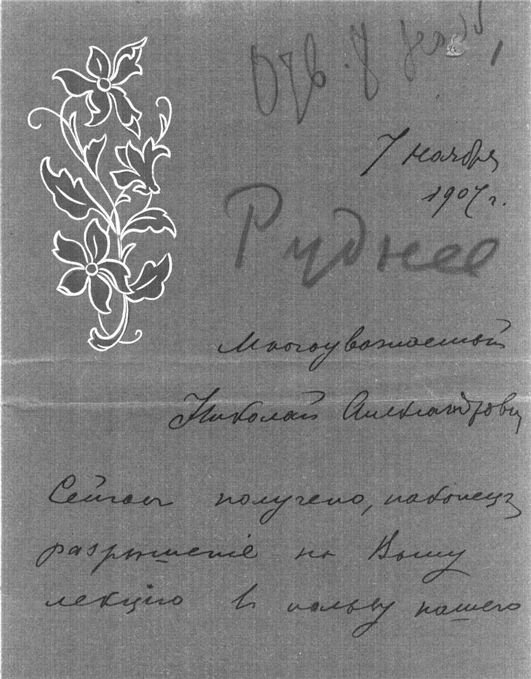 Отв. 7
7 ноября
1907 г.
Руднев
Многоуважаемый
Николай Александрович
Сейчас получено, наконецъ
разрѣшеніе на Вашу
лекцію в пользу нашего